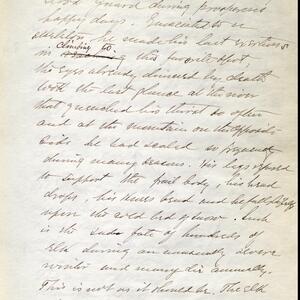 guard during prosperous
happy days. Emaciated to a
skeleton he made his last exertions
in climbing to this favorite spot,
his eyes already dimmed by death
took the last glance at the river
that quenched his thirst so often
and at the mountain on the opposite
side he had scaled so frequently
during many seasons. His legs refused
to support the frail body, his head
drops, his knees bend and he falls
upon the cold bed of snow. Such
is the sad fate of hundreds of
Elk during an unusually severe
winter and many die annually.
This is not as it should be. The Elk